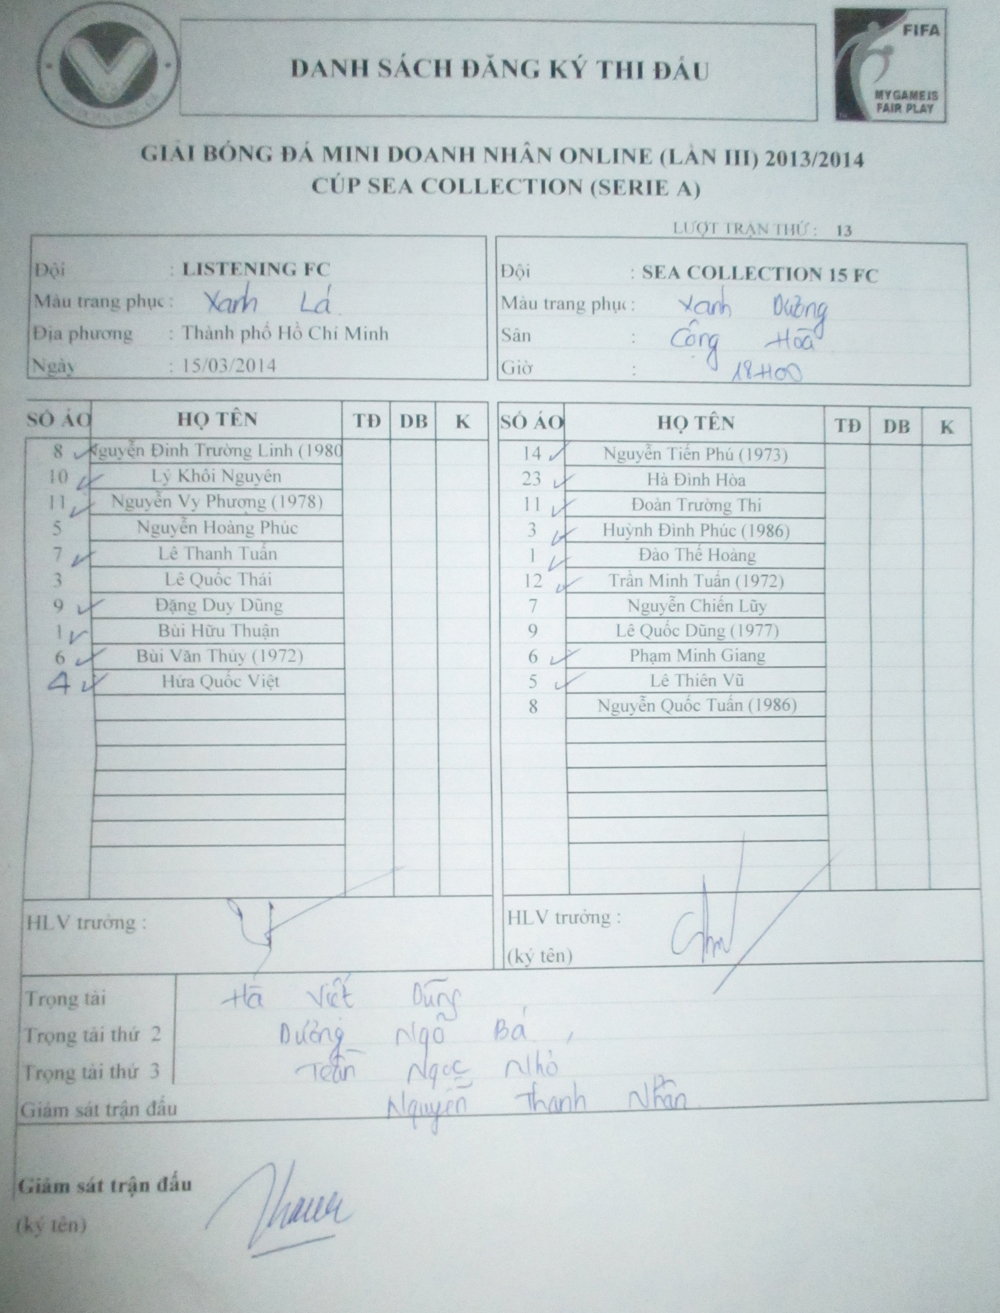 FIFA
MY GAME IS
FAIR PLAY
DANH SÁCH ĐĂNG KÝ THI ĐẤU
GIẢI BÓNG ĐÁ MINI DOANH NHÂN ONLINE (LẦN III) 2013/2014
CÚP SEA COLLECTION (SERIE A)
LƯỢT TRẬN THỨ : 13
Đội : LISTENING FC
Màu trang phục : Xanh Lá
Địa phương : Thành phố Hồ Chí Minh
Ngày : 15/03/2014
Đội : SEA COLLECTION 15 FC
Màu trang phục : Xanh Dương
Sân : Cộng Hoà
Giờ : 18H00
SỐ ÁO HỌ TÊN TĐ DB K
8 Nguyễn Đình Trường Linh (1980
10 Lý Khôi Nguyên
11 Nguyễn Vy Phượng (1978)
5 Nguyễn Hoàng Phúc
7 Lê Thanh Tuấn
3 Lê Quốc Thái
9 Đặng Duy Dũng
1 Bùi Hữu Thuận
6 Bùi Văn Thủy (1972)
4 Hứa Quốc Việt
SỐ ÁO HỌ TÊN TĐ DB K
14 Nguyễn Tiến Phú (1973)
23 Hà Đình Hòa
11 Đoàn Trường Thi
3 Huỳnh Đình Phúc (1986)
1 Đào Thế Hoàng
12 Trần Minh Tuấn (1972)
7 Nguyễn Chiến Lũy
9 Lê Quốc Dũng (1977)
6 Phạm Minh Giang
5 Lê Thiên Vũ
8 Nguyễn Quốc Tuấn (1986)
HLV trưởng :
HLV trưởng :
(ký tên)
Trọng tài Hà Viết Dũng
Trọng tài thứ 2 Dương Ngô Bá
Trọng tài thứ 3 Trần Ngọc Nhỏ
Giám sát trận đấu Nguyễn Thanh Nhân
Giám sát trận đấu
(ký tên)